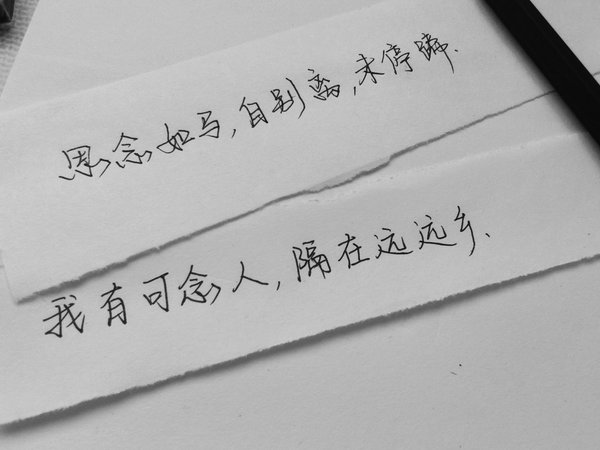 思念如马,自别离,未停蹄.
我有可念人,隔在远远乡.